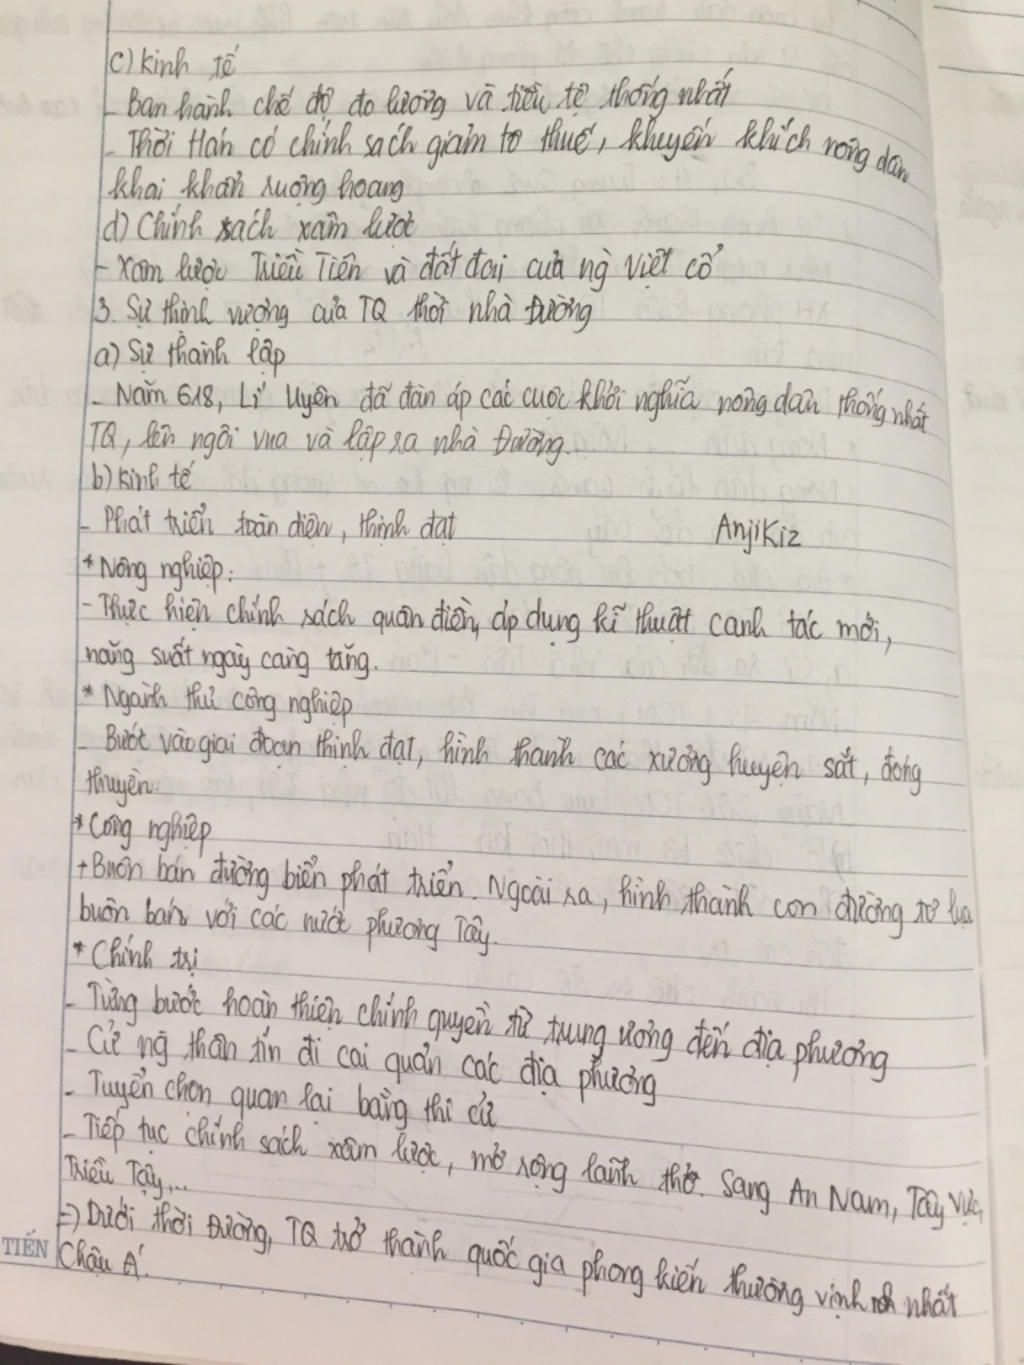 c) Kinh tế
- Ban hành chế độ đo lường và tiền tệ thống nhất
- Thời Hán có chính sách giảm tô thuế, khuyến khích nông dân
khai khẩn ruộng hoang
d) Chính sách xâm lược
- Xâm lược Triều Tiên và đất đai của ng Việt cổ
3. Sự thịnh vượng của TQ thời nhà Đường
a) Sự thành lập
- Năm 618, Lí Uyên đã đàn áp các cuộc khởi nghĩa nông dân thống nhất
TQ, lên ngôi vua và lập ra nhà Đường.
b) Kinh tế
- Phát triển toàn diện, thịnh đạt
AnjiKiz
* Nông nghiệp:
- Thực hiện chính sách quân điền, áp dụng kĩ thuật canh tác mới,
năng suất ngày càng tăng.
* Ngành thủ công nghiệp
- Bước vào giai đoạn thịnh đạt, hình thành các xưởng luyện sắt, đóng
thuyền.
* Công nghiệp
+ Buôn bán đường biển phát triển. Ngoài ra, hình thành con đường tơ lụa
buôn bán với các nước phương Tây.
* Chính trị
- Từng bước hoàn thiện chính quyền từ trung ương đến địa phương
- Cử ng thân tín đi cai quản các địa phương
- Tuyển chọn quan lại bằng thi cử
- Tiếp tục chính sách xâm lược, mở rộng lãnh thổ. Sang An Nam, Tây Vực,
Triều Tây,...
=> Dưới thời Đường, TQ trở thành quốc gia phong kiến thường vịnh nhất
TIẾN
Châu Á.